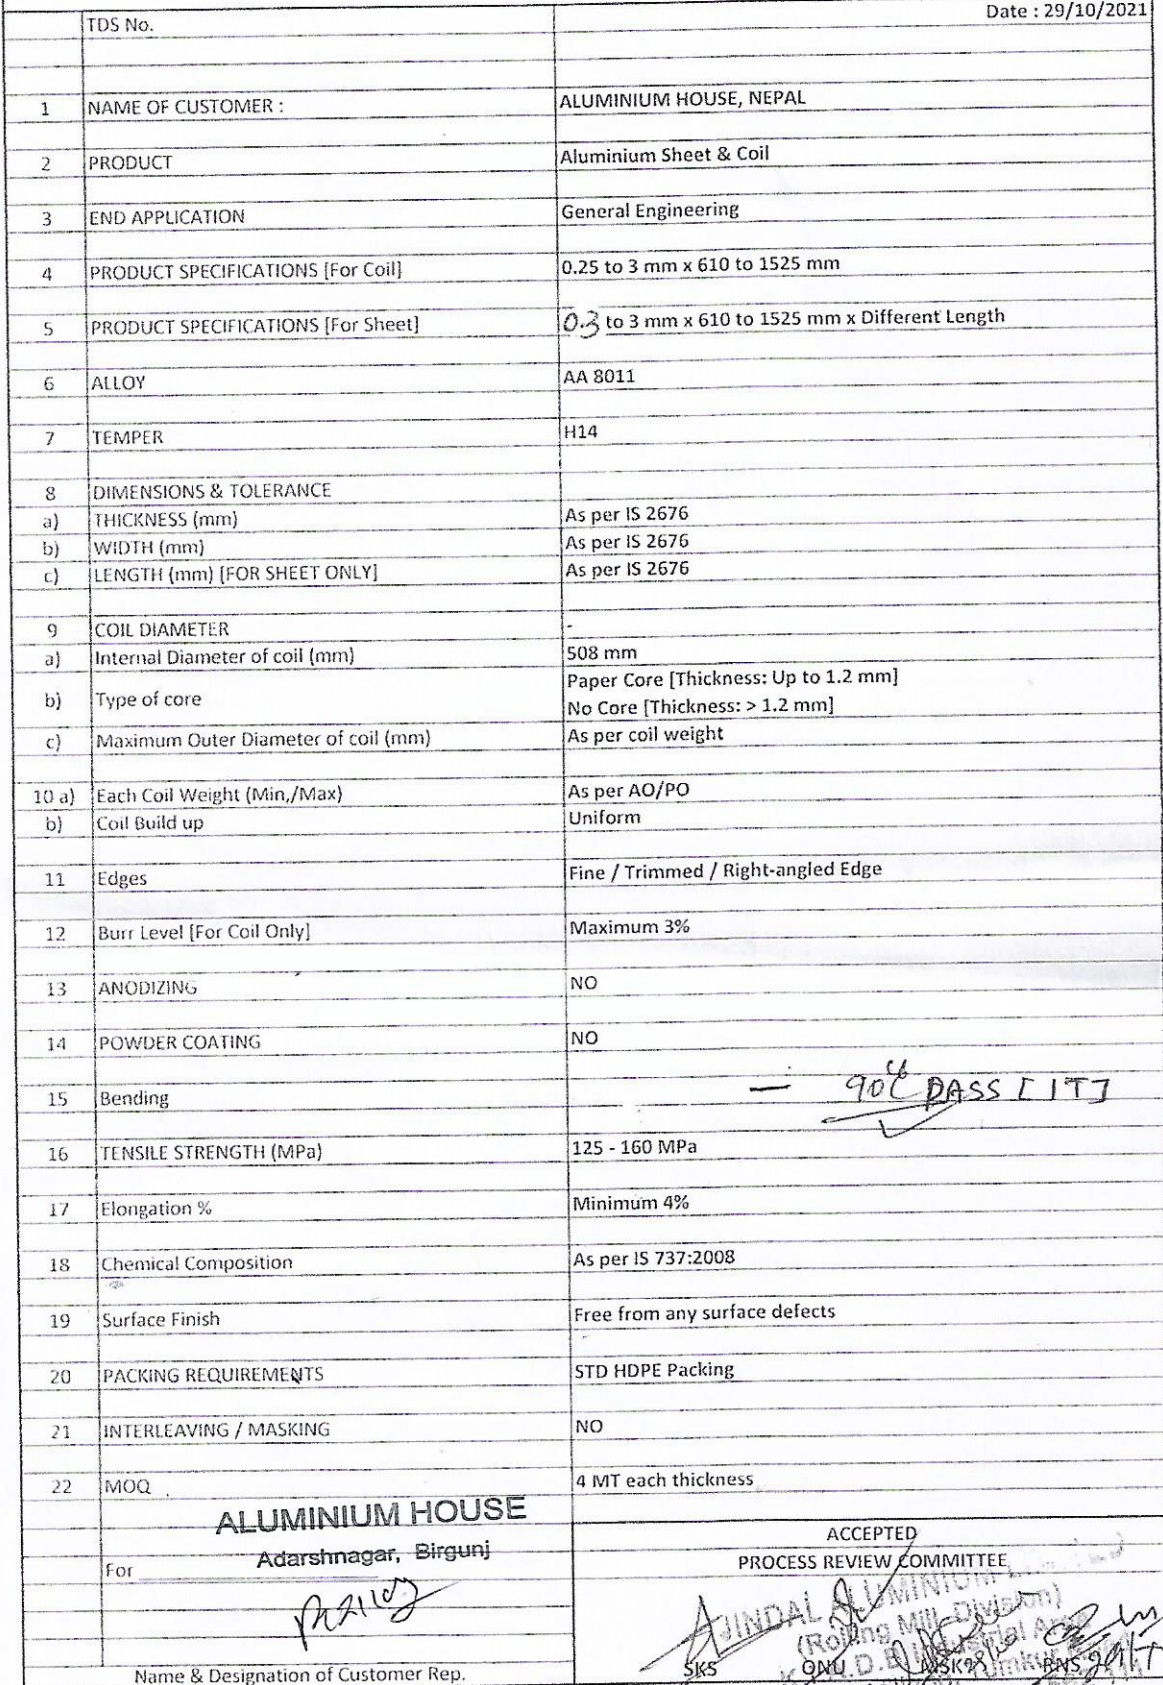 Date : 29/10/2021
TDS No.
1 NAME OF CUSTOMER : ALUMINIUM HOUSE, NEPAL
2 PRODUCT Aluminium Sheet & Coil
3 END APPLICATION General Engineering
4 PRODUCT SPECIFICATIONS [For Coil] 0.25 to 3 mm x 610 to 1525 mm
5 PRODUCT SPECIFICATIONS [For Sheet] 0.3 to 3 mm x 610 to 1525 mm x Different Length
6 ALLOY AA 8011
7 TEMPER H14
8 DIMENSIONS & TOLERANCE
a) THICKNESS (mm) As per IS 2676
b) WIDTH (mm) As per IS 2676
c) LENGTH (mm) [FOR SHEET ONLY] As per IS 2676
9 COIL DIAMETER -
a) Internal Diameter of coil (mm) 508 mm
b) Type of core Paper Core [Thickness: Up to 1.2 mm]
No Core [Thickness: > 1.2 mm]
c) Maximum Outer Diameter of coil (mm) As per coil weight
10 a) Each Coil Weight (Min,/Max) As per AO/PO
b) Coil Build up Uniform
11 Edges Fine / Trimmed / Right-angled Edge
12 Burr Level [For Coil Only] Maximum 3%
13 ANODIZING NO
14 POWDER COATING NO
15 Bending — 90 PASS [1T]
16 TENSILE STRENGTH (MPa) 125 - 160 MPa
17 Elongation % Minimum 4%
18 Chemical Composition As per IS 737:2008
19 Surface Finish Free from any surface defects
20 PACKING REQUIREMENTS STD HDPE Packing
21 INTERLEAVING / MASKING NO
22 MOQ 4 MT each thickness
ALUMINIUM HOUSE
Adarshnagar, Birgunj
For
ACCEPTED
PROCESS REVIEW COMMITTEE
JINDAL ALUMINIUM
(Rolling Mill Division)
Industrial Area
SKS QNU MSK RNS
Name & Designation of Customer Rep.